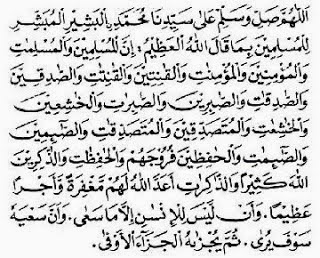 اَللّٰهُمَّ صَلِّ وَسَلِّمْ عَلٰى سَيِّدِنَا مُحَمَّدٍ اَلْبَشِيْرِ الْمُبَشِّرِ
لِلْمُؤْمِنِيْنَ بِمَا قَالَ اللّٰهُ الْعَظِيْمُ : اِنَّ الْمُسْلِمِيْنَ وَالْمُسْلِمٰتِ
وَالْمُؤْمِنِيْنَ وَالْمُؤْمِنٰتِ وَالْقٰنِتِيْنَ وَالْقٰنِتٰتِ وَالصّٰدِقِيْنَ
وَالصّٰدِقٰتِ وَالصّٰبِرِيْنَ وَالصّٰبِرٰتِ وَالْخٰشِعِيْنَ
وَالْخٰشِعٰتِ وَالْمُتَصَدِّقِيْنَ وَالْمُتَصَدِّقٰتِ وَالصَّآئِمِيْنَ
وَالصّٰٓئِمٰتِ وَالْحٰفِظِيْنَ فُرُوْجَهُمْ وَالْحٰفِظٰتِ وَالذّٰكِرِيْنَ
اللّٰهَ كَثِيْرًا وَالذَّاكِرَاتِ اَعَدَّ اللّٰهُ لَهُمْ مَغْفِرَةً وَاَجْرًا
عَظِيْمًا . وَاَنْ لَيْسَ لِلْاِنْسٰنِ اِلَّا مَا سَعٰى . وَاَنَّ سَعْيَهٗ
سَوْفَ يُرٰى . ثُمَّ يُجْزٰىهُ الْجَزَآءَ الْاَوْفٰى .